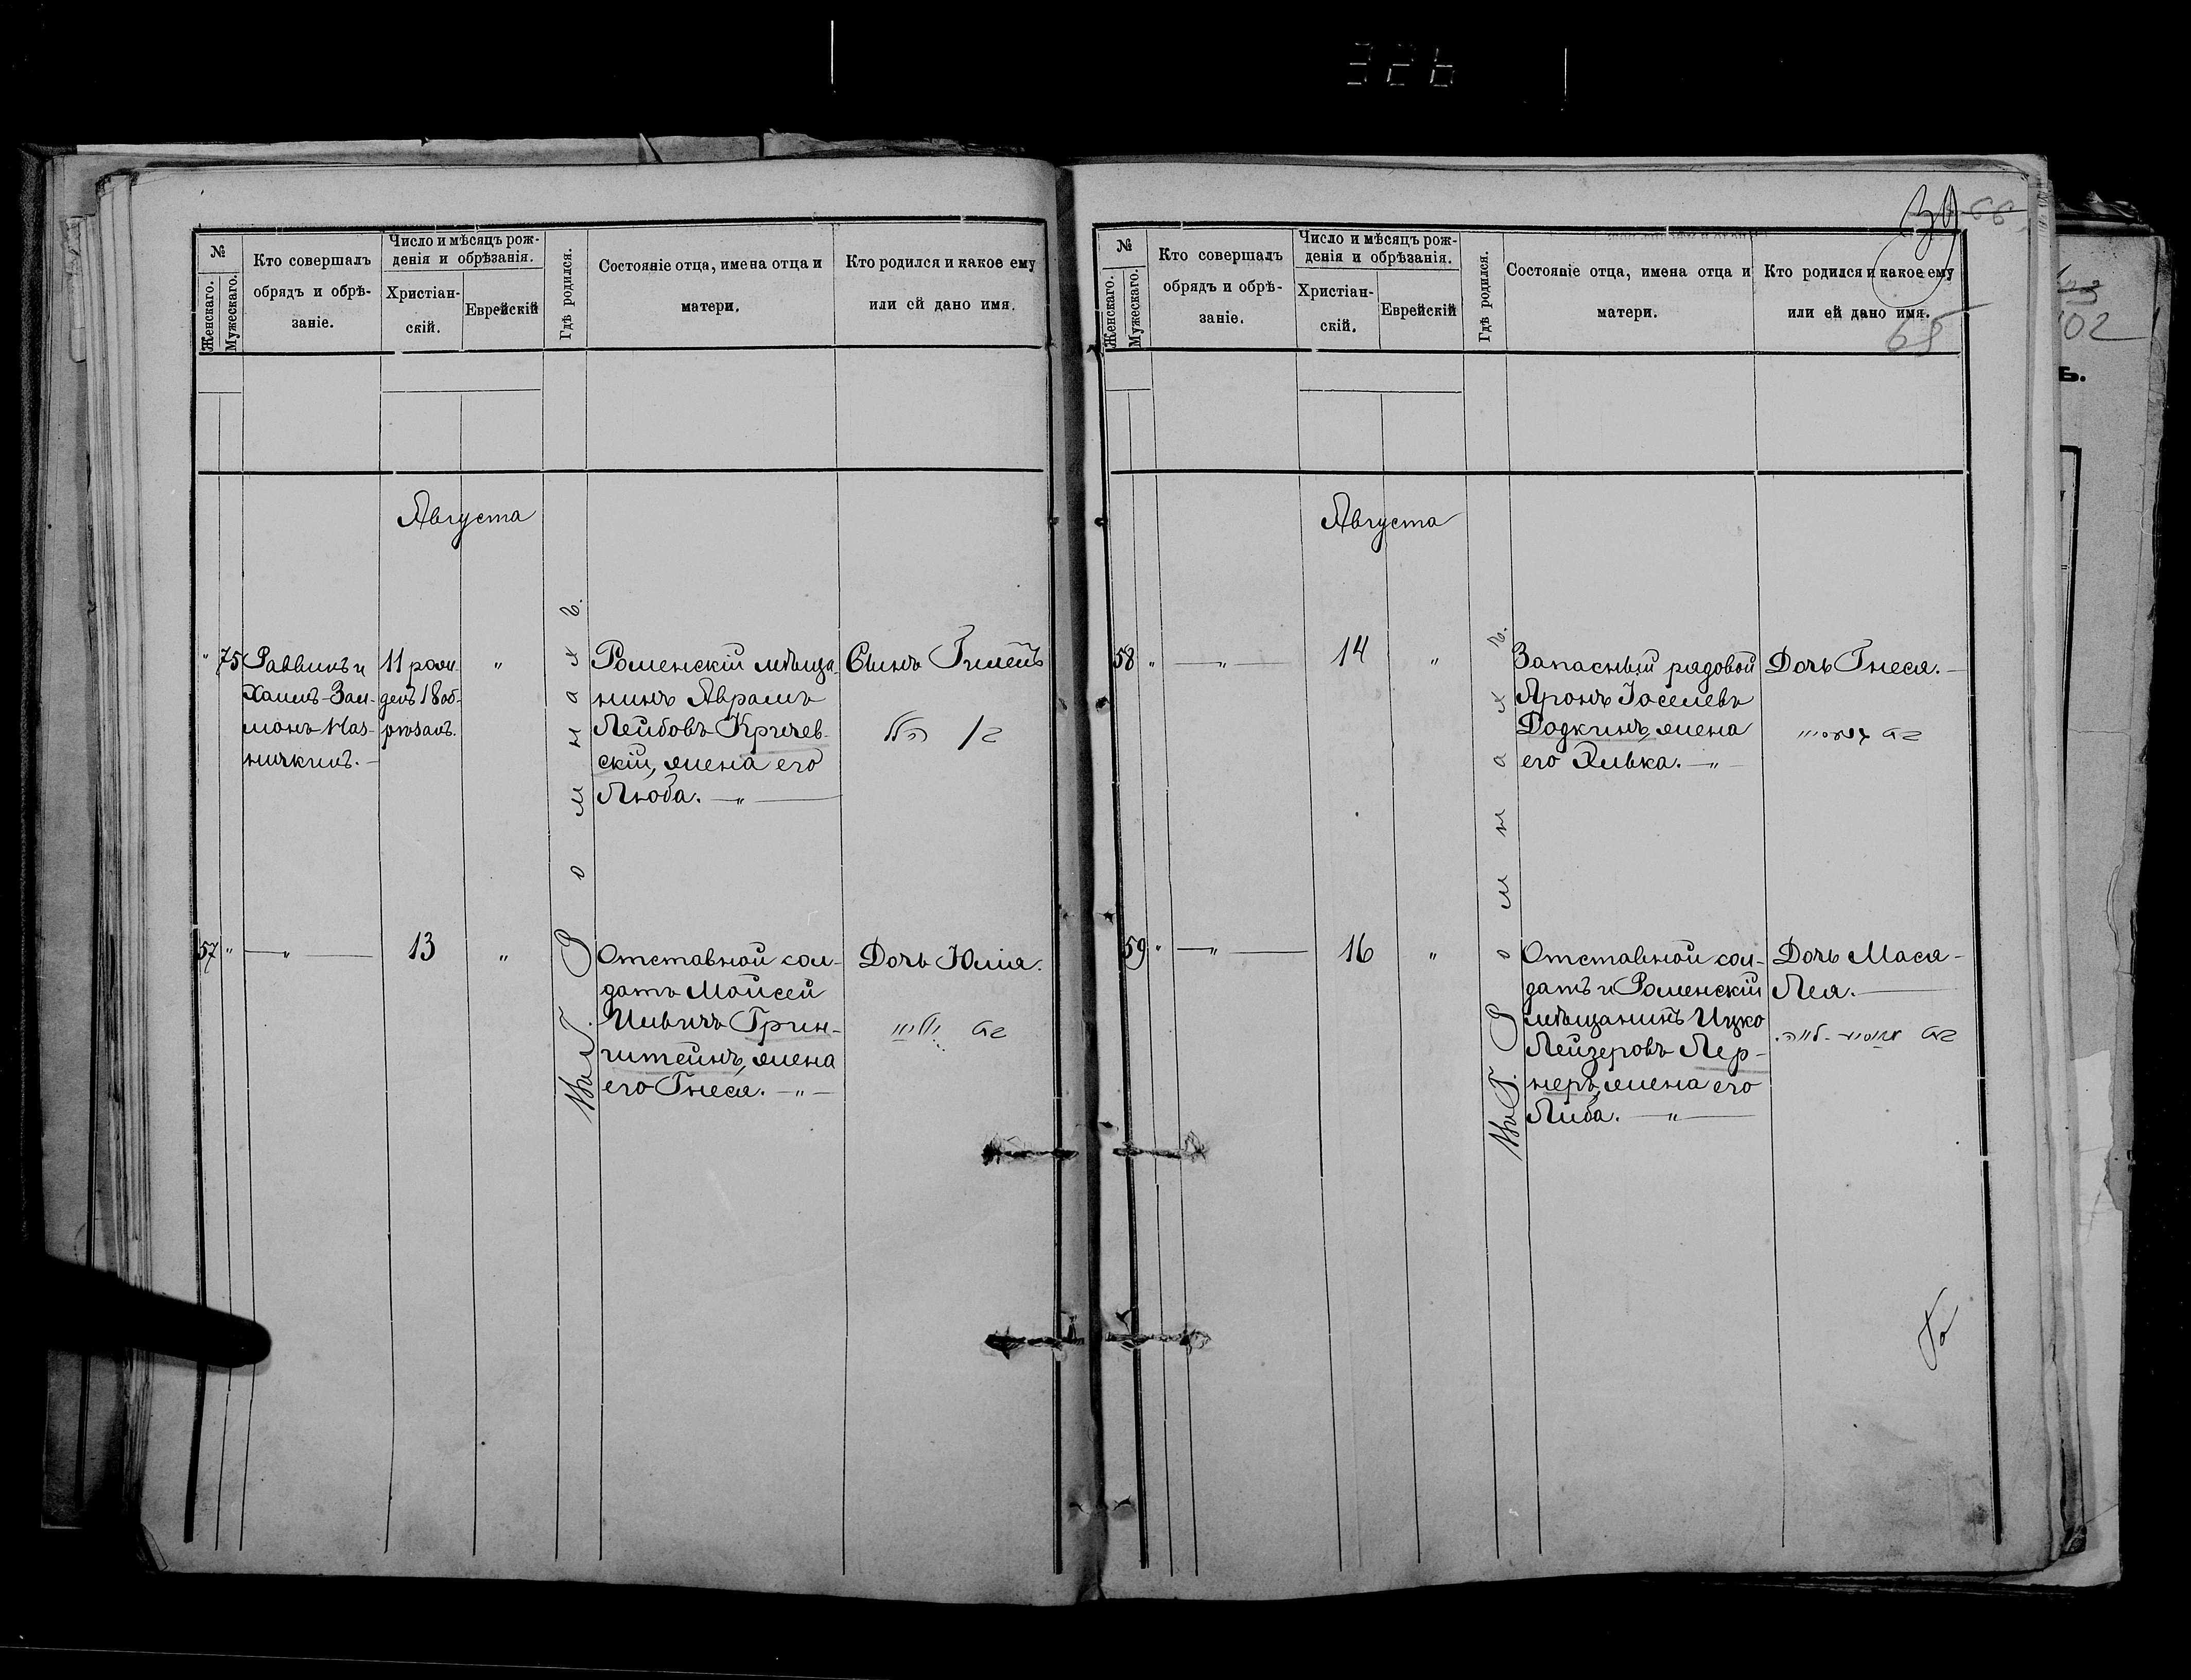 326
№
Женскаго.
Мужескаго.
Кто совершалъ
обрядъ и обрѣ-
заніе.
Число и мѣсяцъ рож-
денія и обрѣзанія.
Христіан-
скій.
Еврейскій
Гдѣ родился.
Состояніе отца, имена отца и
матери.
Кто родился и какое ему
или ей дано имя.
Августа
" 75
Раввинъ и
Хаимъ-Зал-
монъ
11 рожд.
день 18 об-
"
Въ Г. Ромнахъ.
Роменскій мѣща-
нинъ Аврамъ
Лейбовъ Кричев-
скій, жена его
Люба. — " —
Сынъ
57 "
— " —
13
"
Отставной сол-
датъ Мойсей
Грин-
штейнъ, жена
его Гнеся. — " —
Дочь Юлія.
39
66
65
№
Женскаго.
Мужескаго.
Кто совершалъ
обрядъ и обрѣ-
заніе.
Число и мѣсяцъ рож-
денія и обрѣзанія.
Христіан-
скій.
Еврейскій
Гдѣ родился.
Состояніе отца, имена отца и
матери.
Кто родился и какое ему
или ей дано имя.
Августа
58 "
— " —
14
"
Въ Г. Ромнахъ.
Запасный рядовой
Аронъ Іоселевъ
Додкинъ, жена
его Ривка. — " —
Дочь Гнеся. —
59 "
— " —
16
"
Отставной сол-
датъ и Роменскій
мѣщанинъ Ицко
Лейзеровъ Лер-
неръ, жена его
Либа. — " —
Дочь Мася-
Лея. —
102
Б.